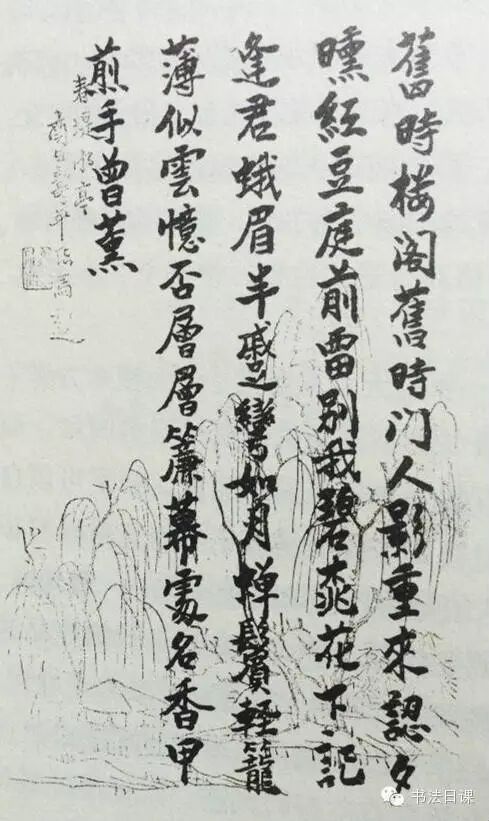 舊時楼阁舊時门人影重來認夕
曛紅豆庭前留别我碧桃花下記
逢君蛾眉半蹙彎如月蟬鬢輕籠
薄似雲憶否層層簾幕處名香甲
煎手曾薰
春堤水亭
书法日课